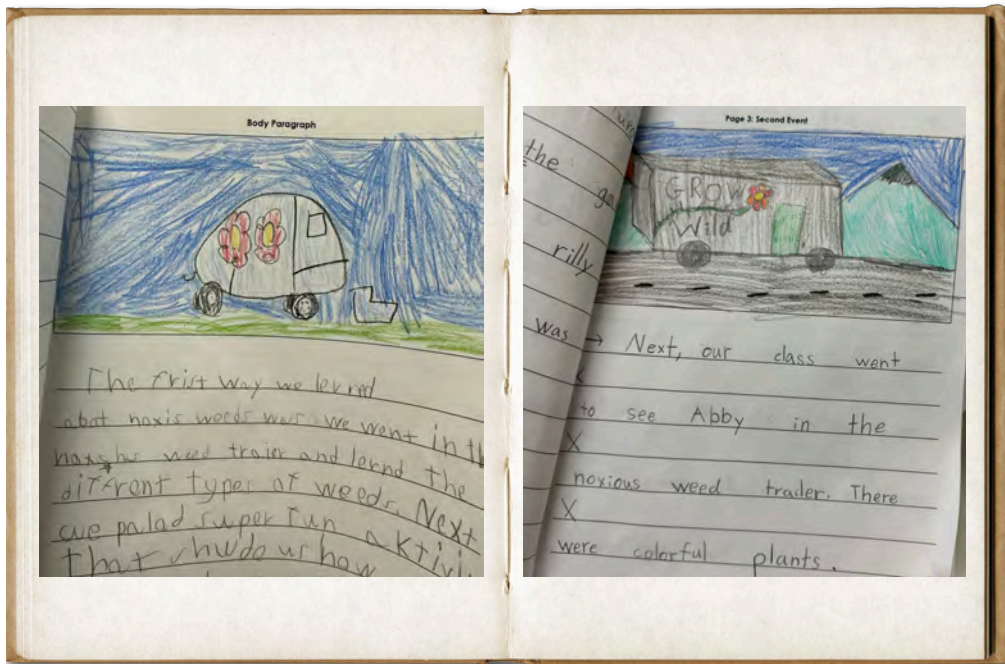 Body Paragraph
The frist way we lerned
abat noxis weeds was we went in th
weed traier and lernd the
diffrent types of weeds. Next
we palad super fun aktivi
That shwdo us how
the
rilly
was
Page 3: Second Event
GROW
Wild
→ Next, our class went
to see Abby in the
X
noxious weed trailer. There
X
were colorful plants.